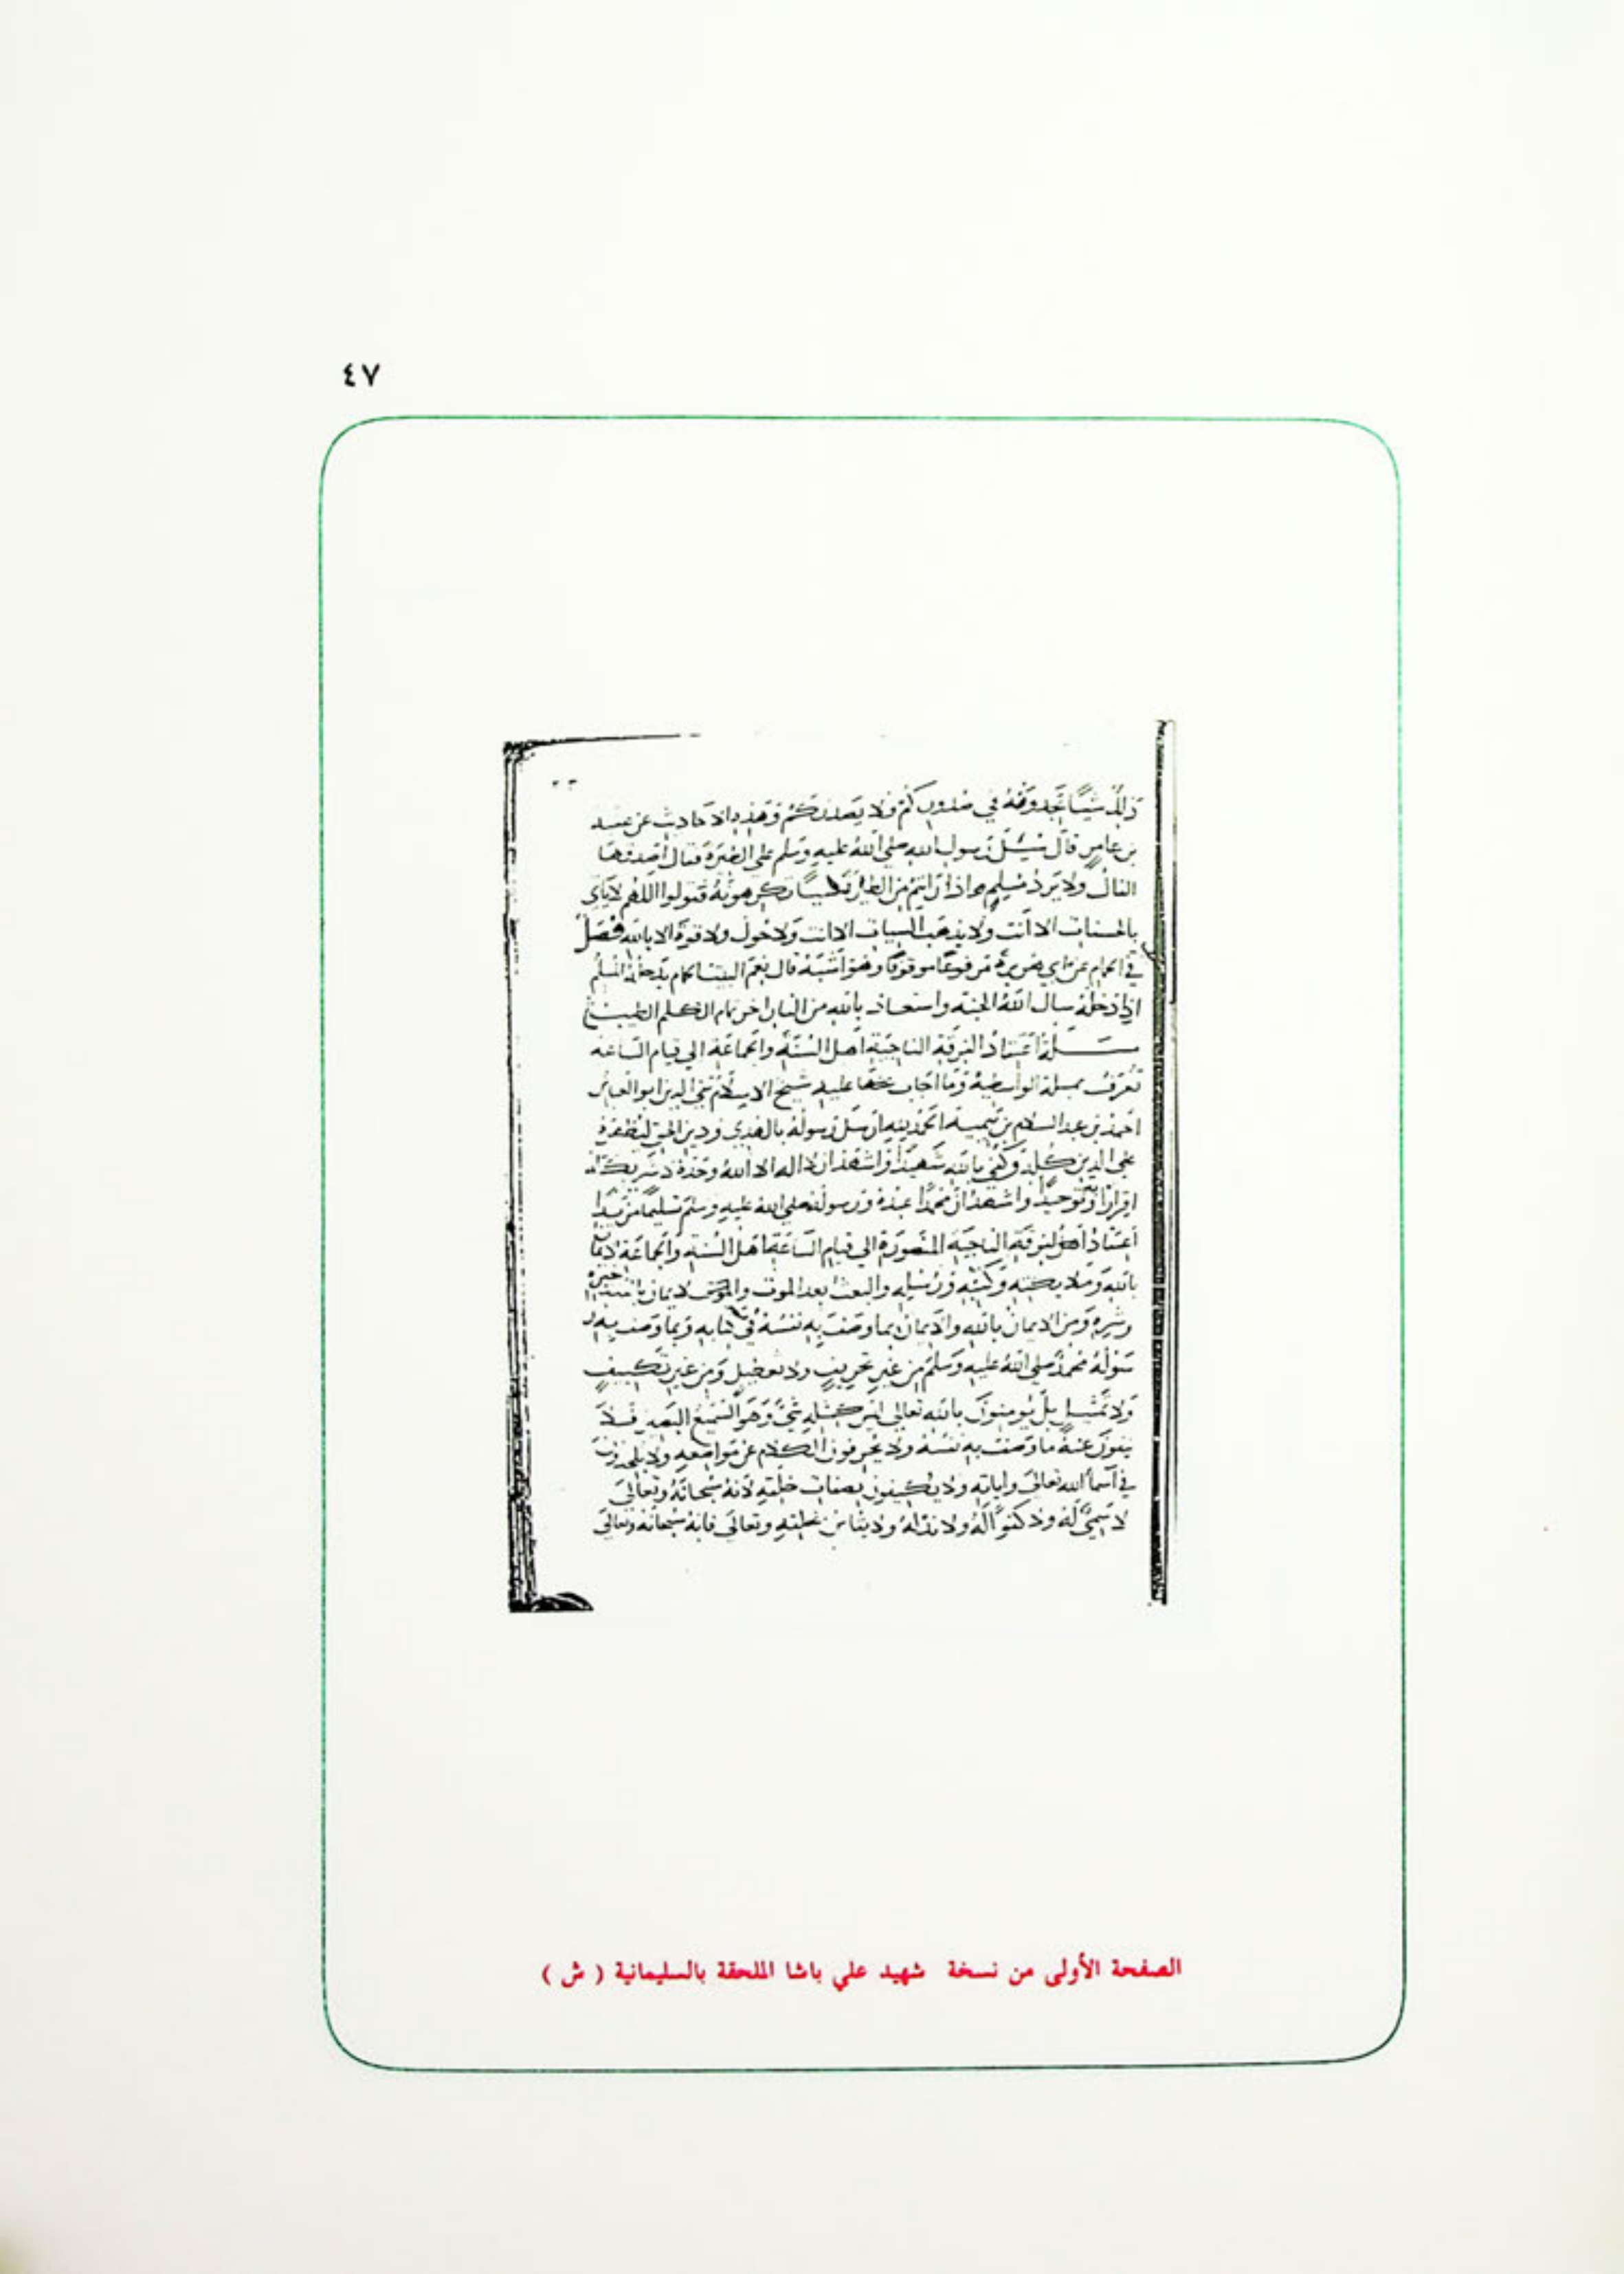 ٤٧
ذلك شيئا تجدونه في صدوركم فلا يصدنكم وهذه الاحاديث عن
بن عامر قال سئل رسول الله صلى الله عليه وسلم على الطيرة فقال اصدقها
الفال ولا يرد مسلم واذا رايتم من الطيرة شيئا تكرهونه فقولوا اللهم لا ياتي
بالحسنات الا انت ولا يذهب السيات الا انت ولا حول ولا قوة الا بالله فصل
في الحمام عن ابي هريرة مرفوعا موقوفا وهو اشبه قال نعم البيت الحمام يدخله المسلم
اذا دخله سال الله الجنة واستعاذ بالله من النار اخر الكلم الطيب
اعتقاد الفرقة الناجية اهل السنة والجماعة الي قيام الساعة
تعرف الواسطية شيخ الاسلام تقي الدين ابو العباس
احمد بن عبد السلام بن تيمية ارسل رسوله بالهدي ودين الحق ليظهره
علي الدين كله وكفي بالله شهيدا واشهد ان لا اله الا الله وحده لا شريك له
اقرارا وتوحيدا واشهد ان محمدا عبده ورسوله صلى الله عليه وسلم تسليما مزيدا
اعتقاد الفرقة الناجية المنصورة الي قيام الساعة اهل السنة والجماعة
بالله وملايكته وكتبه ورسله والبعث بعد الموت خيره
وشره ومن الايمان بالله والايمان بما وصف به نفسه في كتابه وبما وصف به ر
سوله محمد صلى الله عليه وسلم من غير تحريف ولا تعطيل ومن غير تكييف
ولا تمثيل بل يومنون بالله تعالى ليس كمثله شي وهو السميع البصير فلا
ينفون عنه ما وصف به نفسه ولا يحرفون الكلام عن مواضعه ولا يلحدون
في اسما الله تعالى واياته ولا يكيفون بصفات خلقه لانه سبحانه وتعالى
لا سمي له ولا كفوا له ولا ند له ولا يقاس بخلقه وتعالى فانه سبحانه وتعالى
الصفحة الأولى من نسخة شهيد علي باشا الملحقة بالسليمانية ( ش )